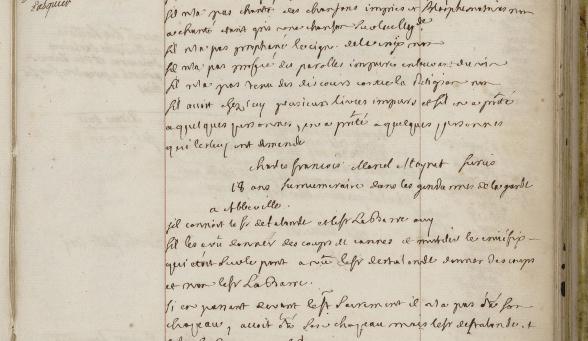 s'il n'a pas chanté des chansons impies et blasphematoires non
a chanté
s'il n'a pas prophané le signe de la croix non
s'il n'a pas proferé des parolles impures en buvant du vin
s'il n'a pas tenu des discours contre la Religion non
s'il avoit chez luy plusieurs livres impurs et s'il en a prété
a quelques personnes, en a prété a quelques personnes
qui le luy ont demandé
Charles francois Marcel Moynet
18 ans surnumeraire dans les gendarmes de la garde
a Abbeville.
s'il connoit le sr detalonde et le sr La Barre ouy
s'il les a vû donner des coups de cannes et mutiler le crucifix
qui étoit sur le pont a vû le sr detalonde donner des coups
et non le sr La Barre.
si en passant devant le st Sacrement il n'a pas son
chapeau, avoit son chapeau mais le sr detalonde